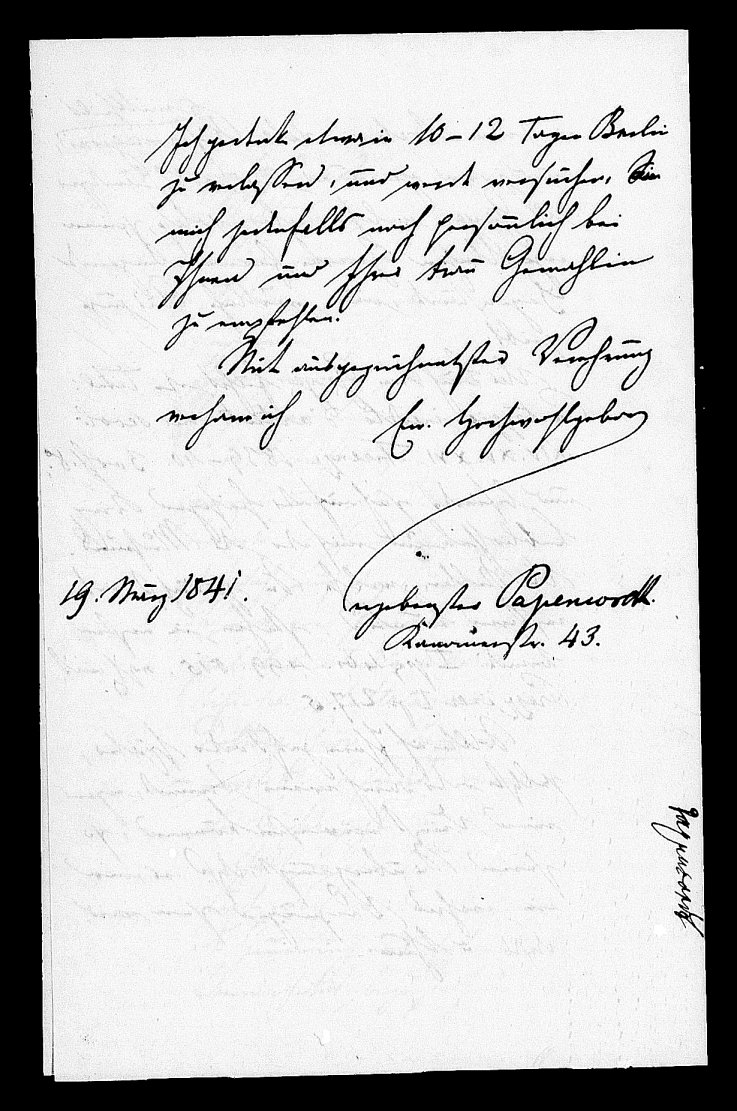 Ich gedenke etwa in 10–12 Tagen Berlin
zu verlassen, und werde versuchen,
mich jedenfalls noch persönlich bei
Ihnen und Ihrer Frau Gemahlin
zu empfehlen.
Mit ausgezeichnetster Verehrung
verharre ich
Ew. Hochwohlgeboren
19. März 1841.
ergebenster Papencordt.
Kanonierstr. 43.
Papencordt